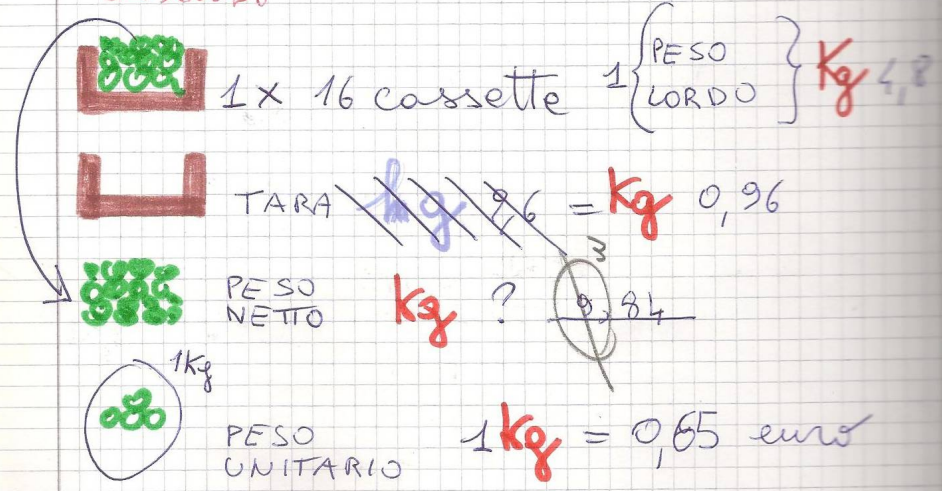 1 x 16 cassette 1 { PESO LORDO } Kg 4,8
TARA hg 9,6 = Kg 0,96
PESO NETTO Kg ? 3,84
1Kg
PESO UNITARIO 1 Kg = 0,65 euro